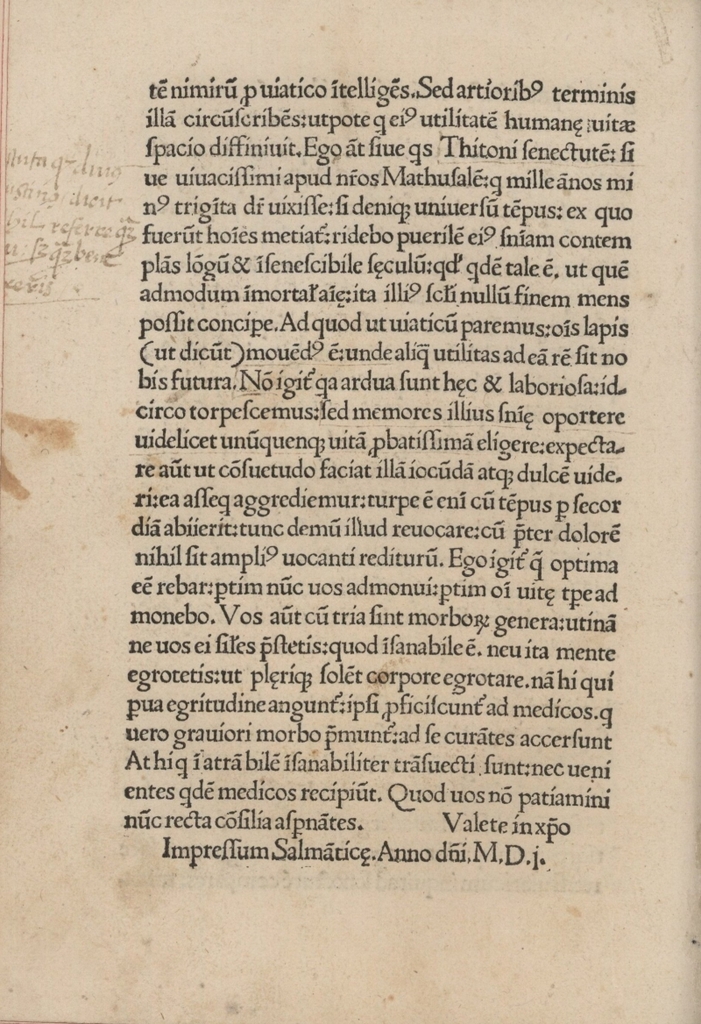 tē nimirū ꝓ uiatico ītelligēs. Sed artiorib⁹ terminis
illā circūſcribēs: utpote q ei⁹ utilitatē humanę uitæ
ſpacio diffiniuit. Ego āt ſiue qs Thitoni ſenectutē: ſi
ue uiuaciſſimi apud nr̄os Mathuſalē: q mille ānos mi
n⁹ trigīta dr̄ uixiſſe: ſi deniqꝫ uniuerſū tēpus: ex quo
fuerūt hoīes metiat᷑: ridebo puerilē ei⁹ ſniam contem
plās lōgū & īſeneſcibile ſęculū: qđ qdē tale ē. ut quē
admodum īmortaƚ aīę: ita illi⁹ ſcƚi nullū finem mens
poſſit concipe. Ad quod ut uiaticū paremus: oīs lapis
(ut dicūt) mouēd⁹ ē: unde aliq̄ utilitas ad eā rē ſit no
bis futura. Nō igit᷑ qa ardua ſunt hęc & laborioſa: id-
circo torpeſcemus: ſed memores illius ſnię oportere
uidelicet unūquenqꝫ uitā ꝓbatiſſimā eligere: expecta-
re aūt ut cōſuetudo faciat illā iocūdā atqꝫ dulcē uide-
ri: ea aſſeq aggrediemur: turpe ē enī cū tēpus p ſecor
diā abiierit: tunc demū illud reuocare: cū p̄ter dolorē
nihil ſit ampli⁹ uocanti rediturū. Ego igit᷑ q̄ optima
eē rebar: ptim nūc uos admonui: ptim oī uitę tpe ad
monebo. Vos aūt cū tria ſint morboꝝ genera: utinā
ne uos ei ſiƚes p̄ſtetis: quod īſanabile ē. neu ita mente
egrotetis: ut plęriqꝫ ſolēt corpore egrotare. nā hi qui
pua egritudine angunt᷑: ipſi ꝓficiſcunt᷑ ad medicos. q
uero grauiori morbo p̄munt᷑: ad ſe curātes accerſunt
At hi q ī atrā bilē īſanabiliter trāſuecti ſunt: nec ueni
entes qdē medicos recipiūt. Quod uos nō patiamini
nūc recta cōſilia aſpnātes. Valete in xp̄o
Impreſſum Salmāticę. Anno dn̄i. M. D. j.